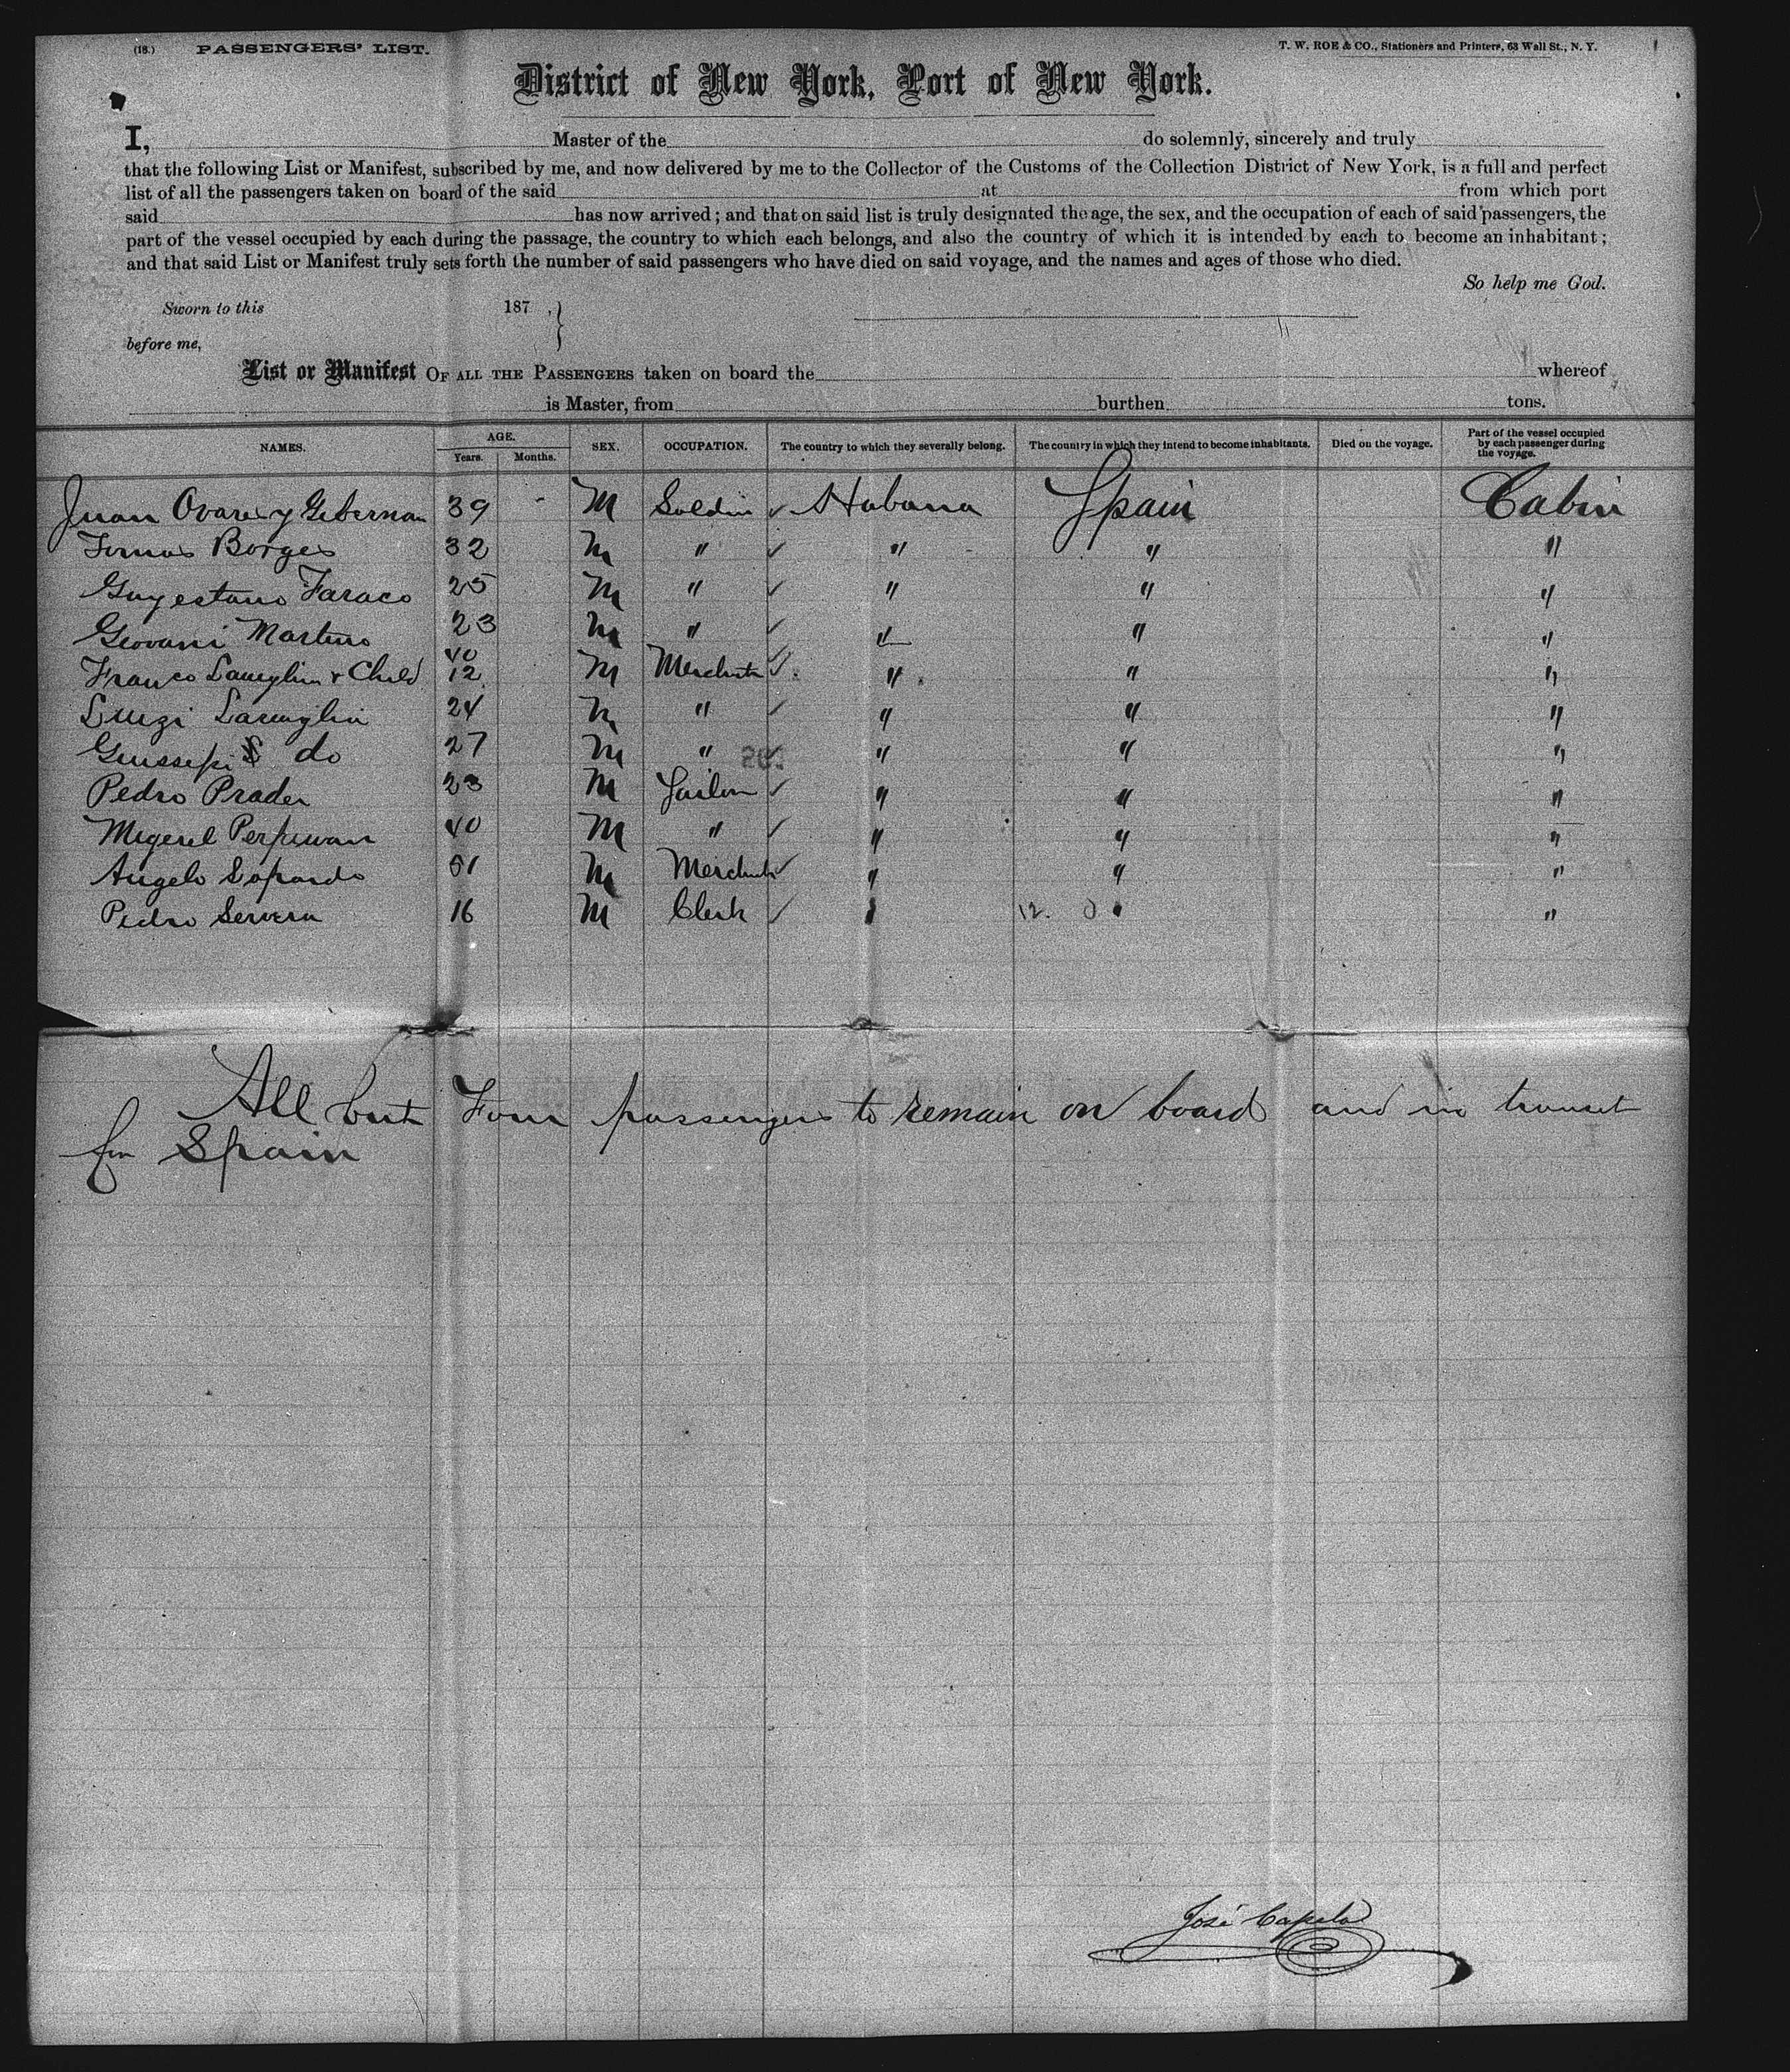 (18.) PASSENGERS' LIST.
T. W. ROE & CO., Stationers and Printers, 63 Wall St., N. Y.
District of New York, Port of New York.
I, Master of the do solemnly, sincerely and truly
that the following List or Manifest, subscribed by me, and now delivered by me to the Collector of the Customs of the Collection District of New York, is a full and perfect
list of all the passengers taken on board of the said at from which port
said has now arrived; and that on said list is truly designated the age, the sex, and the occupation of each of said passengers, the
part of the vessel occupied by each during the passage, the country to which each belongs, and also the country of which it is intended by each to become an inhabitant;
and that said List or Manifest truly sets forth the number of said passengers who have died on said voyage, and the names and ages of those who died.
So help me God.
Sworn to this 187 ,}
before me,
List or Manifest OF ALL THE PASSENGERS taken on board the whereof
is Master, from burthen tons.
NAMES. AGE. Years. Months. SEX. OCCUPATION. The country to which they severally belong. The country in which they intend to become inhabitants. Died on the voyage. Part of the vessel occupied by each passenger during the voyage.
Juan y 39 - M Habana Spain Cabin
Borges 32 M " " " "
Faraco 25 M " " " "
Geovani Martino 23 M " " " "
Franco & Child 40 12 M " " "
Luigi 24 M " " " "
do 27 M " " " "
Pedro Prader 23 M " " "
40 M " " " "
Angelo 51 M " " "
Pedro Servera 16 M Clerk " 12. "
All but Four passengers to remain on board and in transit
for Spain
José Capelo